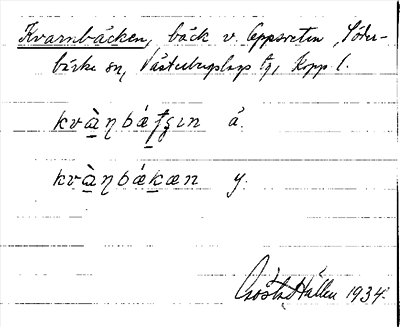 Kvarnbäcken, bäck v. Uppsveten, Söder-
bärke sn, Västerbergslags fg, Kopp. l.
kvàηbáꞙʒın á.
kvàηbákæn y.
Gösta Hallén 1934.